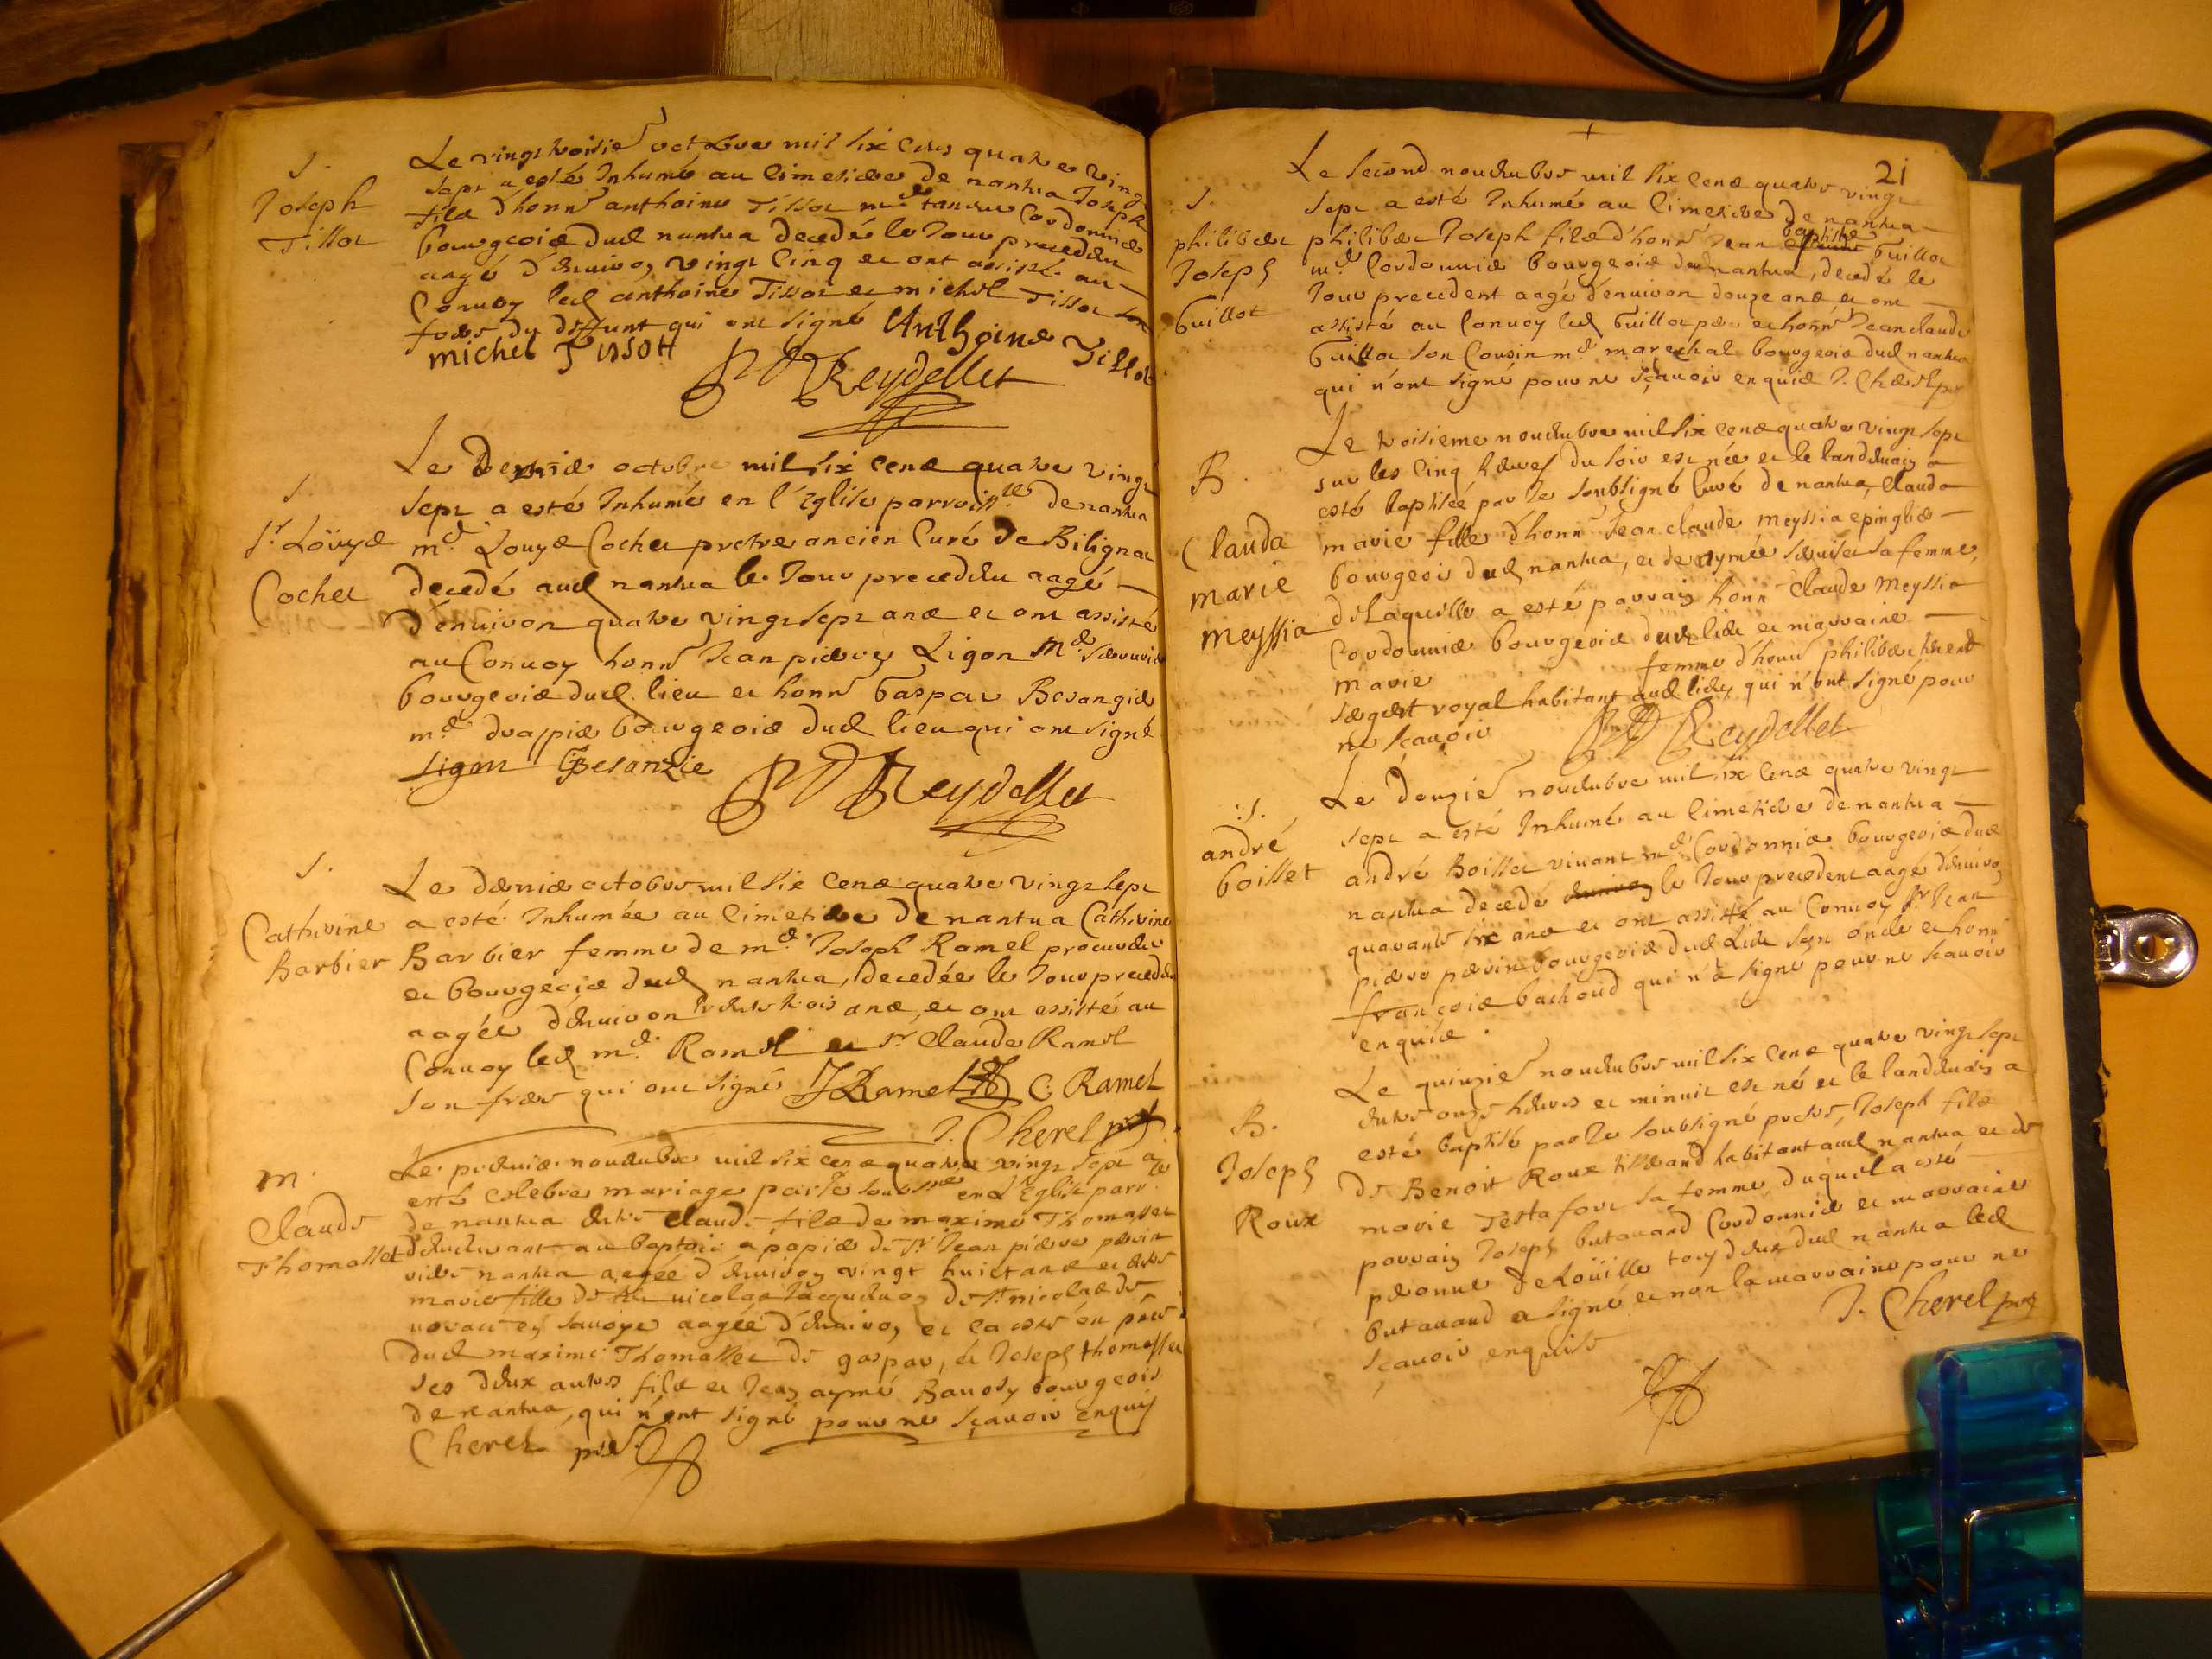 S.
Joseph
Tissot
Le vingt troisie octobre mil six cens quatre vingt
sept a esté Inhumé au cimetiere de nantua Joseph
fils d'honn anthoine Tissot md tanneur Cordonnier
bourgeois dud nantua decedé le Jour precedent
aagé d'environ vingt cinq et ont assisté au
Convoy led anthoine Tissot et michel Tissot son
frere du deffunt qui ont signé Anthoine Tissot
michel Tissott
Reydellet
S.
Sr. Louys
Cochet
Le dernier octobre mil six cens quatre vingt
sept a esté Inhumé en l'Eglise parroissle de nantua
mr Louys Cochet prestre ancien Curé de Bilignat
decedé aud nantua le Jour precedent aagé
d'environ quatre vingt sept ans et ont assisté
au Convoy honn Jean pierre Ligon Md
bourgeois dud lieu et honn Gaspar Besangie
md drapier bourgeois dud lieu qui ont signé
Ligon GBesanzie
Reydellet
S.
Cathrine
Barbier
Le dernier octobre mil six cens quatre vingt sept
a esté Inhumée au cimetiere de nantua Cathrine
Barbier femme de md Joseph Ramel procureur
et bourgeois dud nantua, decedée le Jour precedent
aagée d'environ trente trois ans, et ont assisté au
Convoy led md Ramel et sr Claude Ramel
son frere qui ont signé JRamel C. Ramel
J. Cherel ptre
M.
Claude
Thomasset
Le premier novembre mil six cens quatre vingt sept a
esté celebre mariage par Je soubsne en L'Eglise parrle
de nantua entre Claude fils de maxime Thomasset
demeurant au papie de sr Jean pierre perrin
nantua agée d'environ vingt huict ans et
marie fille de nicolas de St nicolas de
en savoye aagée d'environ et
dud maxime Thomasset de gaspar, et Joseph thomasset
ses deux autres fils et Jean aymé bourgeois
de nantua, qui n'ont signé pour ne sçavoir enquis
Cherel ptre
21
S.
philibert
Joseph
Guillot
Le second novembre mil six cens quatre vingt
sept a esté Inhumé au cimetiere de nantua
philibert Joseph fils d'honn Jean baptiste Guillot
md Cordonnier bourgeois dud nantua, decedé le
Jour precedent aagé d'environ douze ans et ont
assisté au Convoy led Guillot pere et honn Jean claude
Guillot son Cousin md marechal bourgeois dud nantua
qui n'ont signé pour ne sçavoir enquis J. Cherel ptre
B.
Clauda
marie
meyssia
Le troisieme novembre mil six cens quatre vingt sept
sur les cinq heures du soir est née et le landemain a
esté baptisée par Je soubsigné Curé de nantua, Clauda
marie fille d'honn Jean claude meyssia epinglier
bourgeois dud nantua, et de aymée sa femme,
de Laquelle a esté parrain honn Claude Meyssia
Cordonnier bourgeois dud lieu et marraine
marie femme d'honn philibert
sergent royal habitant aud lieu qui n'ont signé pour
ne sçavoir
Reydellet
S.
andré
boisset
Le douzie novembre mil six cens quatre vingt
sept a esté Inhumé au cimetiere de nantua
andré Boisset vivant md Cordonnier bourgeois dud
nantua decedé le Jour precedent aagé d'environ
quarante six ans et ont assisté au Convoy sr Jean
pierre perrin bourgeois dud Lieu son oncle et honn
françois bachoud qui n'a signé pour ne scavoir
enquis.
B.
Joseph
Roux
Le quinzie novembre mil six cens quatre vingt sept
entre onze heures et minuit est né et le landemain a
esté baptisé par Je soubsigné prestre, Joseph fils
de Benoit Roux tisserand habitant aud nantua et de
marie Testafort sa femme, duquel a esté
parrain Joseph butavand Cordonnier et marraine
peronne deLoüille tous deux dud nantua led
butavand a signé et non la marraine pour ne
sçavoir enquise J. Cherel ptre